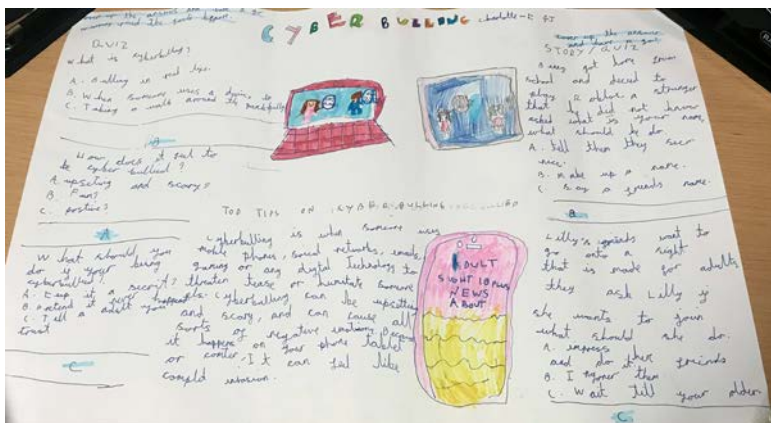 CYBER BULLING
QUIZ
What is cyberbulling?
A. Bulling in real life.
B. When someone uses a device to
C. Taking a walk around the
B
How does it feel to
be cyber bullied?
A. upseting and scary?
B. Fun?
C. postive?
A
What should you
do if your being
cyberbullied?
A. Keep it a secret?
B. Pretend it never happend
C. Tell a adult you
trust
C
TOP TIPS ON CYBERBULLING
Cyberbulling is when someone uses
mobile phones, social networks, emails,
gaming or any digital technology to
threaten tease or humilate someone
Cyberbulling can be upsetting
and scary, and can cause all
sorts of negative emotions
it happens on your phone tablet
or It can feel like
invasion.
ADULT
SIGHT 18 PLUS
NEWS
ABOUT
and have a
STORY/QUIZ
got home from
school and decied to
play a a stranger
that he did not know
asked what is your name,
what should he do.
A. tell them they
nice.
B. make up a name.
C. Say a friends name.
B
Lilly's friends want to
go onto a sight
that is made for adults
they ask Lilly if
she wants to join
what should she do.
A. impress her friends
and do it
B. Ignoner them
C. Wait till your older.
C